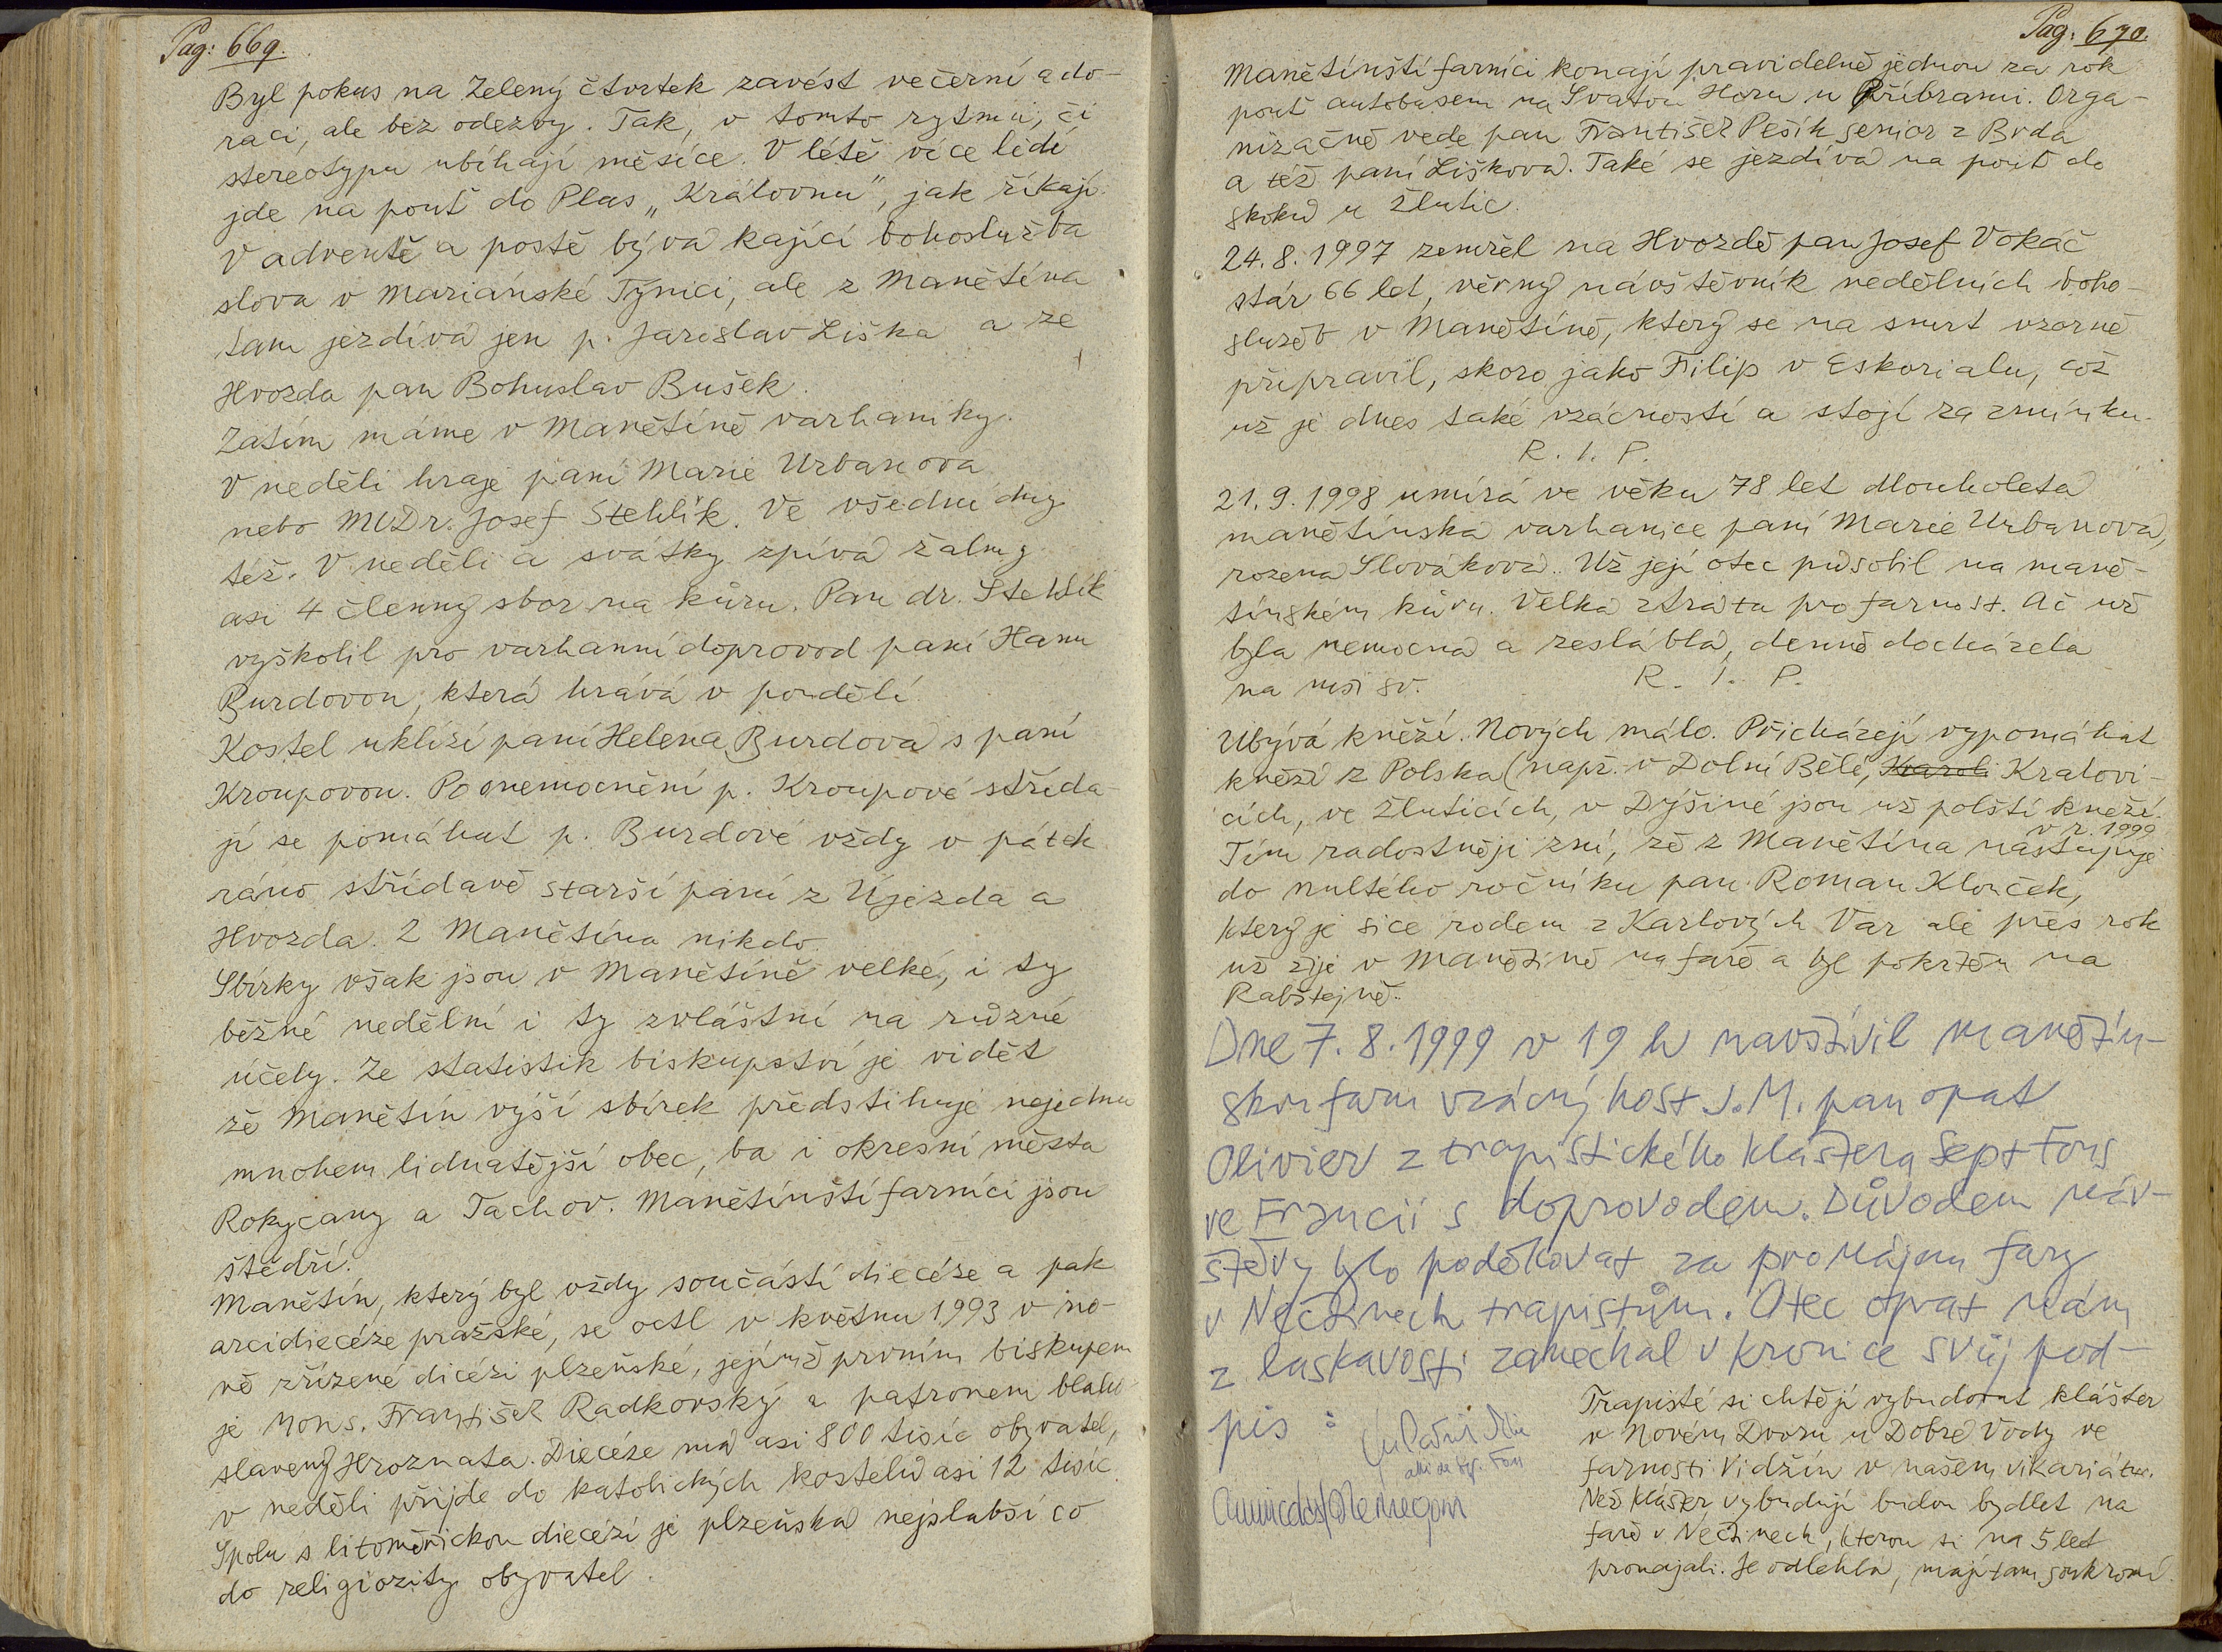 Pag: 669.
Byl pokus na Zelený čtvrtek zavést večerní ado-
raci, ale bez odezvy. Tak, v tomto rytmu, či
stereotypu ubíhají měsíce. V létě více lidí
jde na pouť do Plas „Královnu“, jak říkají.
V adventě a postě bývá kající bohoslužba
slova v Mariánské Týnici, ale z Manětína
tam jezdívá jen p. Jaroslav Liška a ze
Hvozda pan Bohuslav Bušek.
Zatím máme v Manětíně varhaníky.
V neděli hraje paní Marie Urbanová
nebo MUDr. Josef Stehlík. Ve všední dny
též. V neděli a svátky zpívá žalmy
asi 4 členný sbor na kůru. Pan dr. Stehlík
vyškolil pro varhanní doprovod paní Hanu
Burdovou, která hrává v pondělí.
Kostel uklízí paní Helena Burdová s paní
Kroupovou. Po onemocnění p. Kroupové střída-
jí se pomáhat p. Burdové vždy v pátek
ráno střídavě starší paní z Újezda a
Hvozda. Z Manětína nikdo.
Sbírky však jsou v Manětíně velké, i ty
běžné nedělní i ty zvláštní na různé
účely. Ze statistik biskupství je vidět
že Manětín výší sbírek předstihuje nejednu
mnohem lidnatější obec, ba i okresní města
Rokycany a Tachov. Manětínští farníci jsou
štědří.
Manětín, který byl vždy součástí diecéze a pak
arcidiecéze pražské, se octl v květnu 1993 v no-
vě zřízené dicézi plzeňské, jejímž prvním biskupem
je Mons. František Radkovský a patronem blaho-
slavený Hroznata. Diecéze má asi 800 tisíc obyvatel,
v neděli přijde do katolických kostelů asi 12 tisíc.
Spolu s litoměřickou diecézí je plzeňská nejslabší co
do religiozity obyvatel.
Pag: 670.
Manětínští farníci konají pravidelně jednou za rok
pouť autobusem na Svatou Horu u Příbrami. Orga-
nizačně vede pan František Pešík senior z Brda
a též paní Lišková. Také se jezdívá na pouť do
Skoků u Žlutic.
24.8.1997 zemřel na Hvozdě pan Josef Vokáč
stár 66 let, věrný návštěvník nedělních boho-
služeb v Manětíně, který se na smrt vzorně
připravil, skoro jako Filip v Eskorialu, což
už je dnes také vzácností a stojí za zmínku.
R. I. P.
21.9.1998 umírá ve věku 78 let dlouholetá
manětínská varhanice paní Marie Urbanová,
rozená Slováková. Už její otec působil na maně-
tínském kůru. Velká ztráta pro farnost. Ač už
byla nemocná a zesláblá, denně docházela
na mši sv. R. I. P.
Ubývá kněží. Nových málo. Přicházejí vypomáhat
kněží z Polska (např. v Dolní Bělé, Kralovi-
cích, ve Žluticích, v Dýšině jsou už polští kněží.
v r. 1999
Tím radostněji zní, že z Manětína nastupuje
do nultého ročníku pan Roman Klouček,
který je sice rodem z Karlových Var ale přes rok
už žije v Manětíně na faře a byl pokřtěn na
Rabštejně.
Dne 7.8.1999 v 19 h navštívil manětín-
skou faru vzácný host J. M. pan opat
Olivier z trapistického kláštera Sept Fons
ve Francii s doprovodem. Důvodem náv-
štěvy bylo poděkovat za pronájem fary
v Nečtinech trapistům. Otec opat nám
z laskavosti zanechal v kronice svůj pod-
pis :
Trapisté si chtějí vybudovat klášter
v Novém Dvoru u Dobré Vody ve
farnosti Vidžín v našem vikariátu.
Než klášter vybudují budou bydlet na
faře v Nečtinech, kterou si na 5 let
pronajali. Je odlehlá, mají tam soukromí.